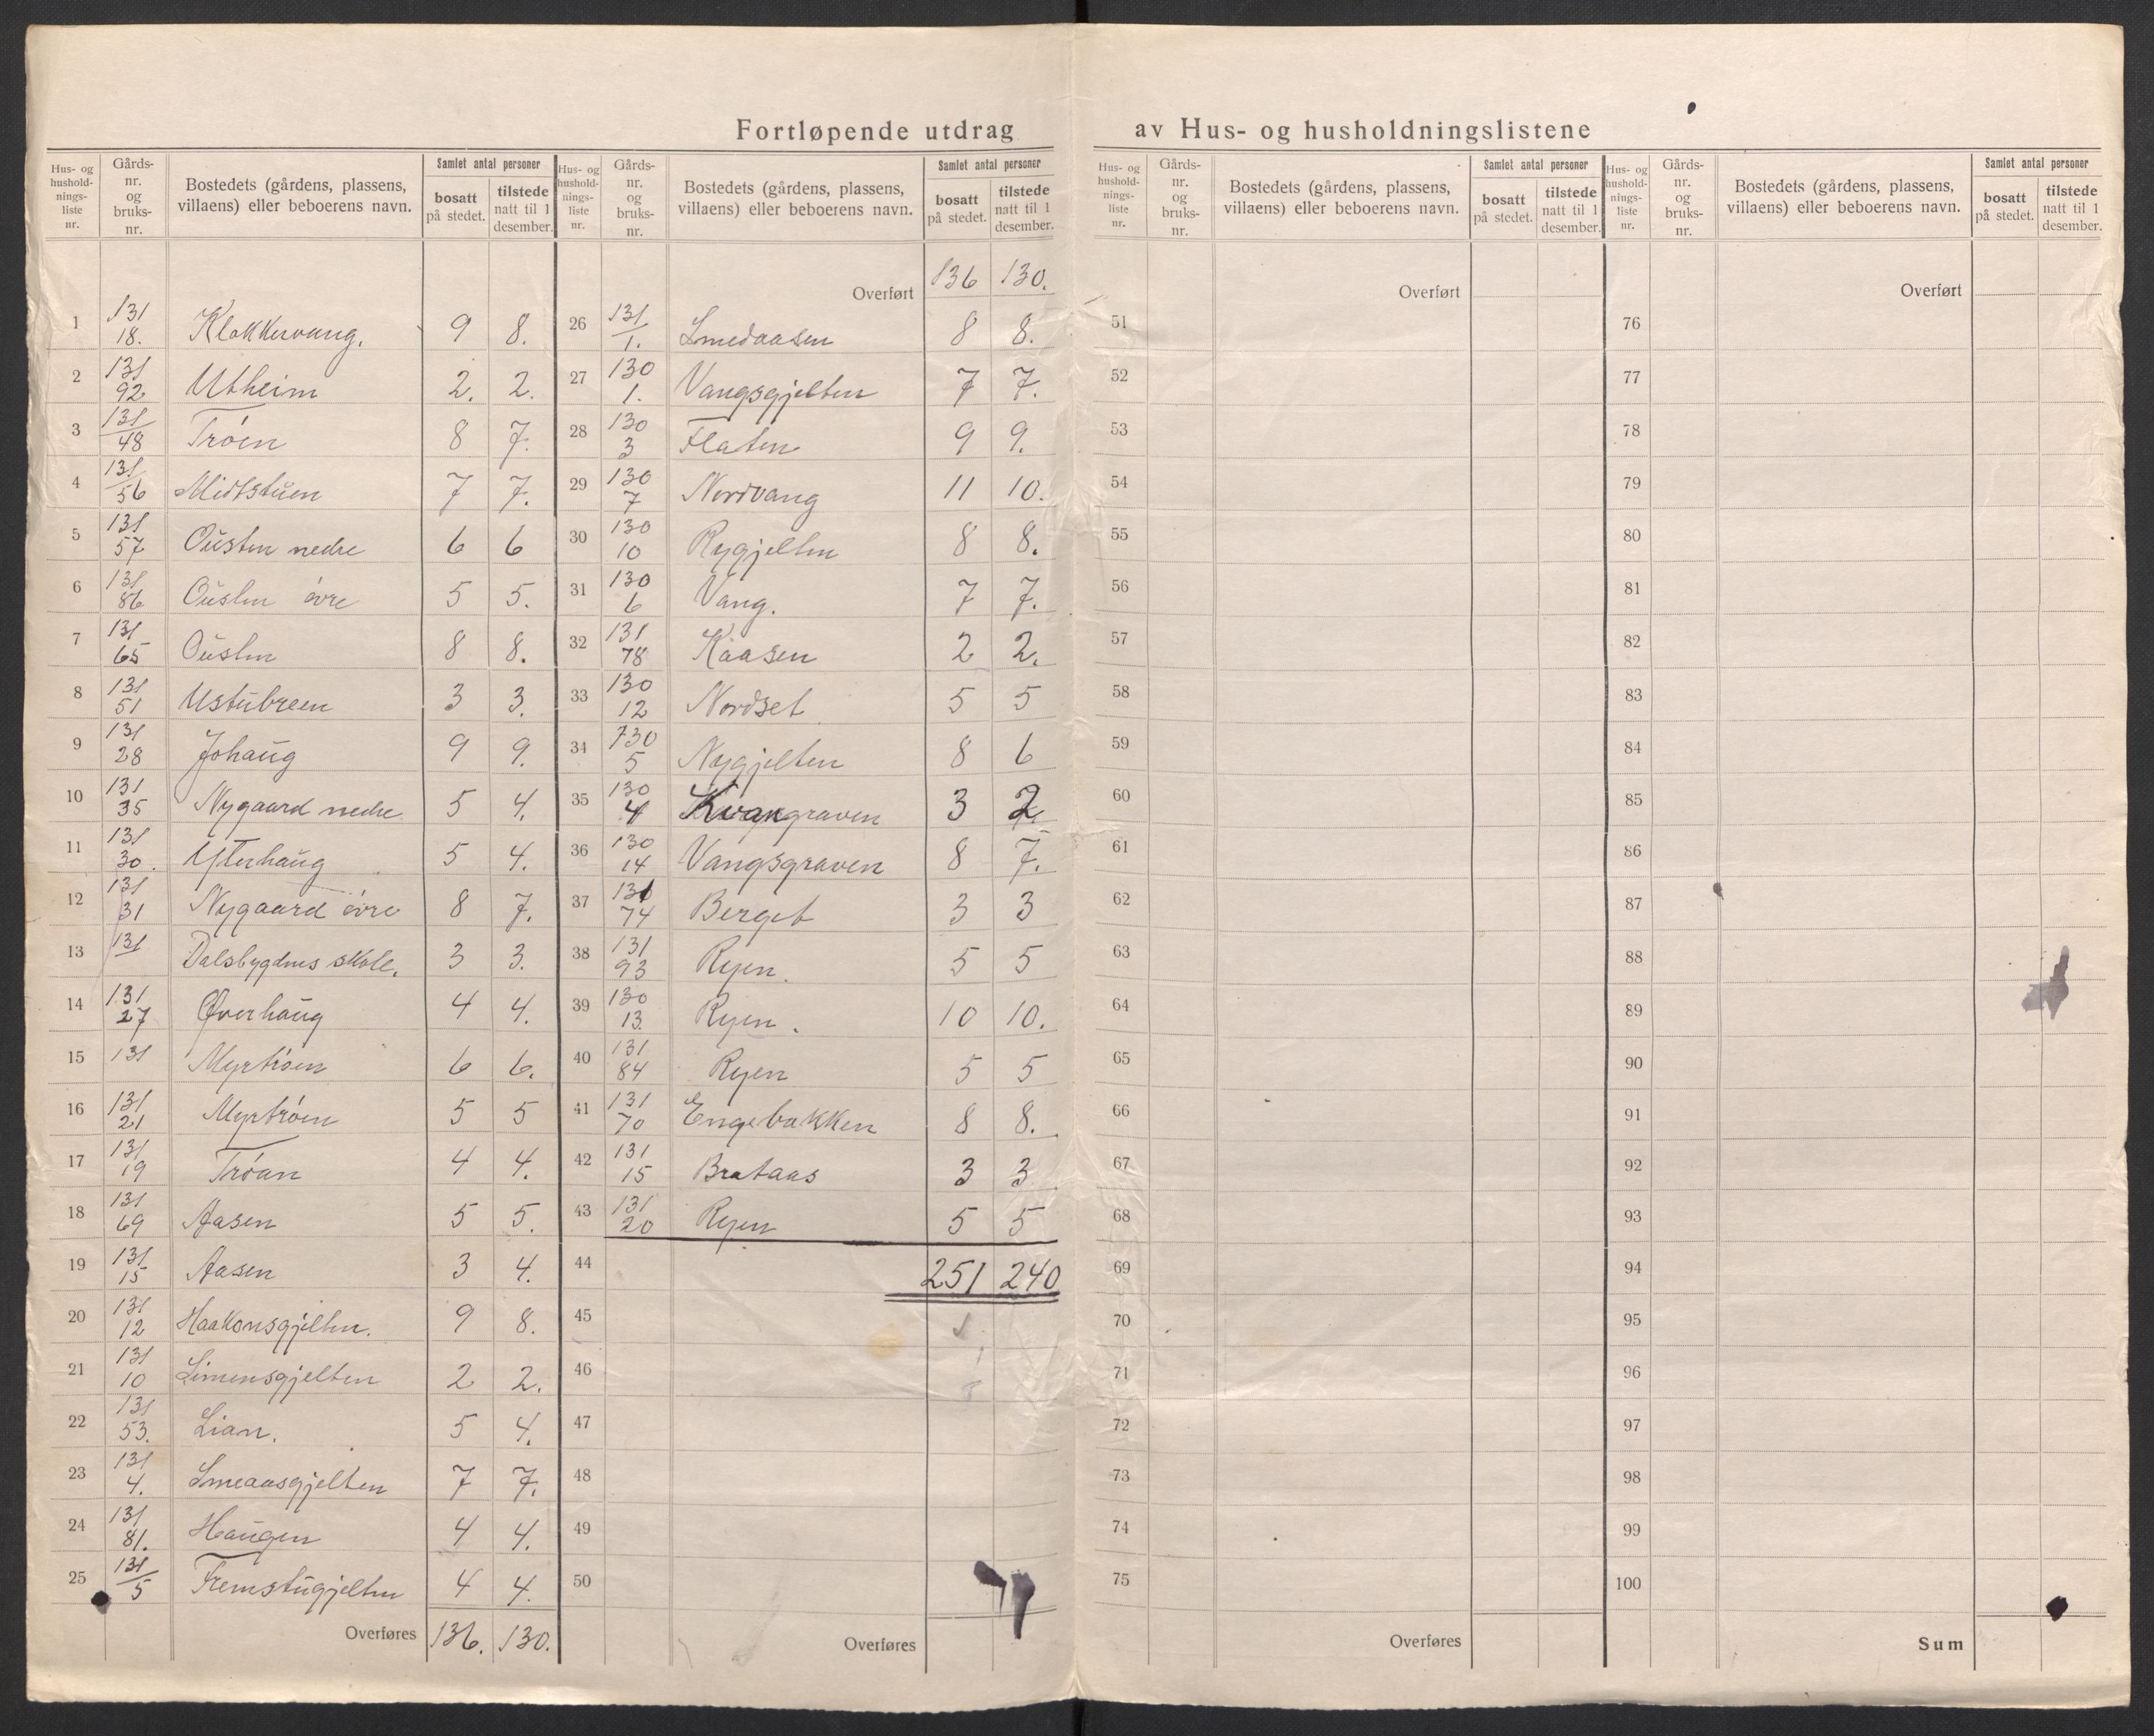 Fortløpende utdrag av Hus- og husholdningslistene
Hus- og hushold-nings-liste nr. | Gårds-nr. og bruks-nr. | Bostedets (gårdens, plassens, villaens) eller beboerens navn. | Samlet antal personer | bosatt på stedet. | tilstede natt til 1 desember.
1 131/18. Klokkervang. 9 8.
2 131/92 Utheim 2. 2.
3 131/48 Trøen 8 7.
4 131/56 Midtstuen 7 7.
5 131/57 Ousten nedre 6 6
6 131/86 Ousten øvre 5 5.
7 131/65 Ousten 8 8.
8 131/51 Ustubreen 3 3.
9 131/28 Johaug 9 9.
10 131/35 Nygaard nedre 5 4.
11 131/30. Ytterhaug 5 4.
12 131/31 Nygaard øvre 8 7.
13 131 Dalsbygdens skole. 3 3.
14 131/27 Øverhaug 4 4.
15 131 Myrtrøen 6 6.
16 131/21 Myrtrøen 5 5
17 131/19 Trøan 4 4.
18 131/69 Aasen 5 5.
19 131/15 Aasen 3 4.
20 131/12 Haakonsgjelten. 9 8.
21 131/10 Simensgjelten 2 2.
22 131/53. Lian. 5 4.
23 131/4. Smeaasgjelten 7 7.
24 131/81. Haugen 4 4.
25 131/5 Fremstugjelten 4 4.
Overføres 136. 130.
Hus- og hushold-nings-liste nr. | Gårds-nr. og bruks-nr. | Bostedets (gårdens, plassens, villaens) eller beboerens navn. | Samlet antal personer | bosatt på stedet. | tilstede natt til 1 desember.
Overført 136 130.
26 131/1. Smedaasen 8 8.
27 130/1. Vangsgjelten 7 7.
28 130/3 Flaten 9 9.
29 130/7 Nordvang 11 10.
30 130/10 Rygjelten 8 8.
31 130/6 Vang. 7 7.
32 131/78 Kaasen 2 2.
33 130/12 Nordset 5 5
34 130/5 Nygjelten 8 6
35 130/4 Kvangraven 3 2
36 130/14 Vangsgraven 8 7.
37 131/74 Berget 3 3
38 131/93 Ryen. 5 5
39 130/13. Ryen. 10 10.
40 131/84 Ryen 5 5
41 131/70 Engebakken 8 8.
42 131/15 Brataas 3 3
43 131/20 Ryen 5 5
44 251 240
45
46
47
48
49
50
Overføres
Hus- og hushold-nings-liste nr. | Gårds-nr. og bruks-nr. | Bostedets (gårdens, plassens, villaens) eller beboerens navn. | Samlet antal personer | bosatt på stedet. | tilstede natt til 1 desember.
Overført
51
52
53
54
55
56
57
58
59
60
61
62
63
64
65
66
67
68
69
70
71
72
73
74
75
Overføres
Hus- og hushold-nings-liste nr. | Gårds-nr. og bruks-nr. | Bostedets (gårdens, plassens, villaens) eller beboerens navn. | Samlet antal personer | bosatt på stedet. | tilstede natt til 1 desember.
Overført
76
77
78
79
80
81
82
83
84
85
86
87
88
89
90
91
92
93
94
95
96
97
98
99
100
Sum